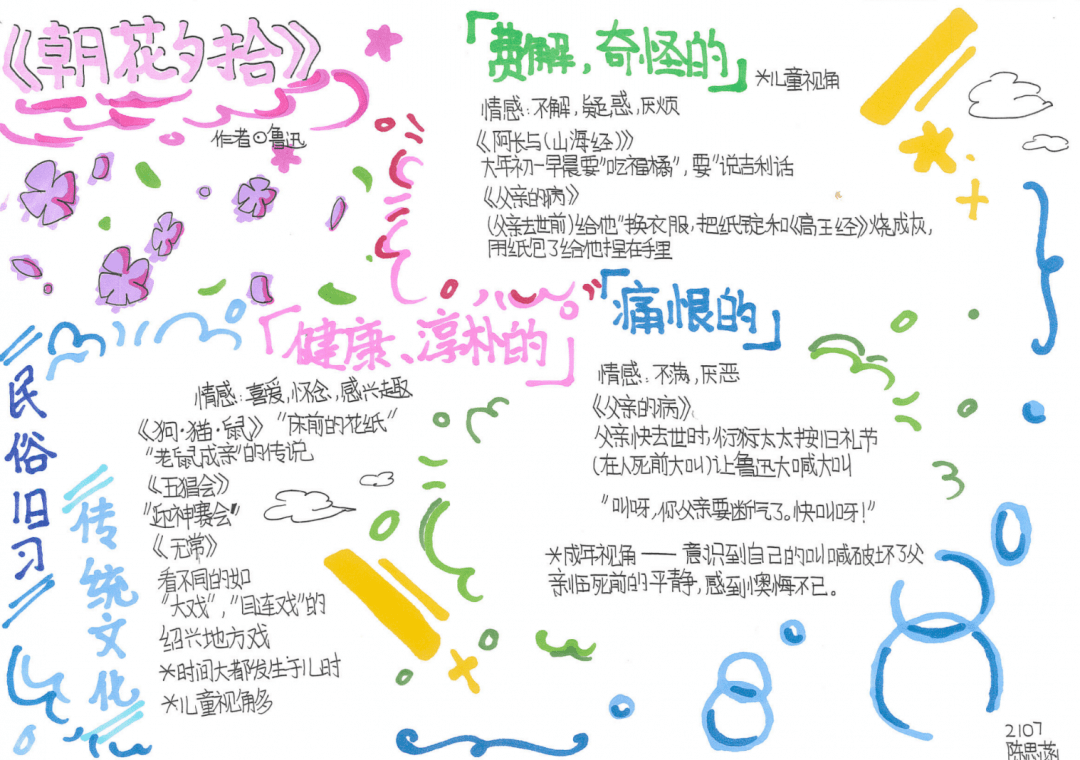 《朝花夕拾》
作者⊙鲁迅
「费解,奇怪的」
*儿童视角
情感:不解,疑惑,厌烦
《阿长与(山海经)》
大年初一早晨要"吃福橘",要"说吉利话
《父亲的病》
(父亲去世前)给他"换衣服,把纸锭和《高王经》烧成灰,
用纸包了给他捏在手里
「健康、淳朴的」
情感:喜爱,怀念,感兴趣
《狗·猫·鼠》 "床前的花纸"
"老鼠成亲"的传说
《五猖会》
"迎神赛会"
《无常》
看不同的如
"大戏","目连戏"的
绍兴地方戏
*时间大都发生于儿时
*儿童视角多
「痛恨的」
情感:不满,厌恶
《父亲的病》
父亲快去世时,衍太太按旧礼节
(在人死前大叫)让鲁迅大喊大叫
"叫呀,你父亲要断气了。快叫呀!"
*成年视角——意识到自己的叫喊破坏了父
亲临死前的平静,感到懊悔不已。
民俗旧习
传统文化
2107
陈思菡